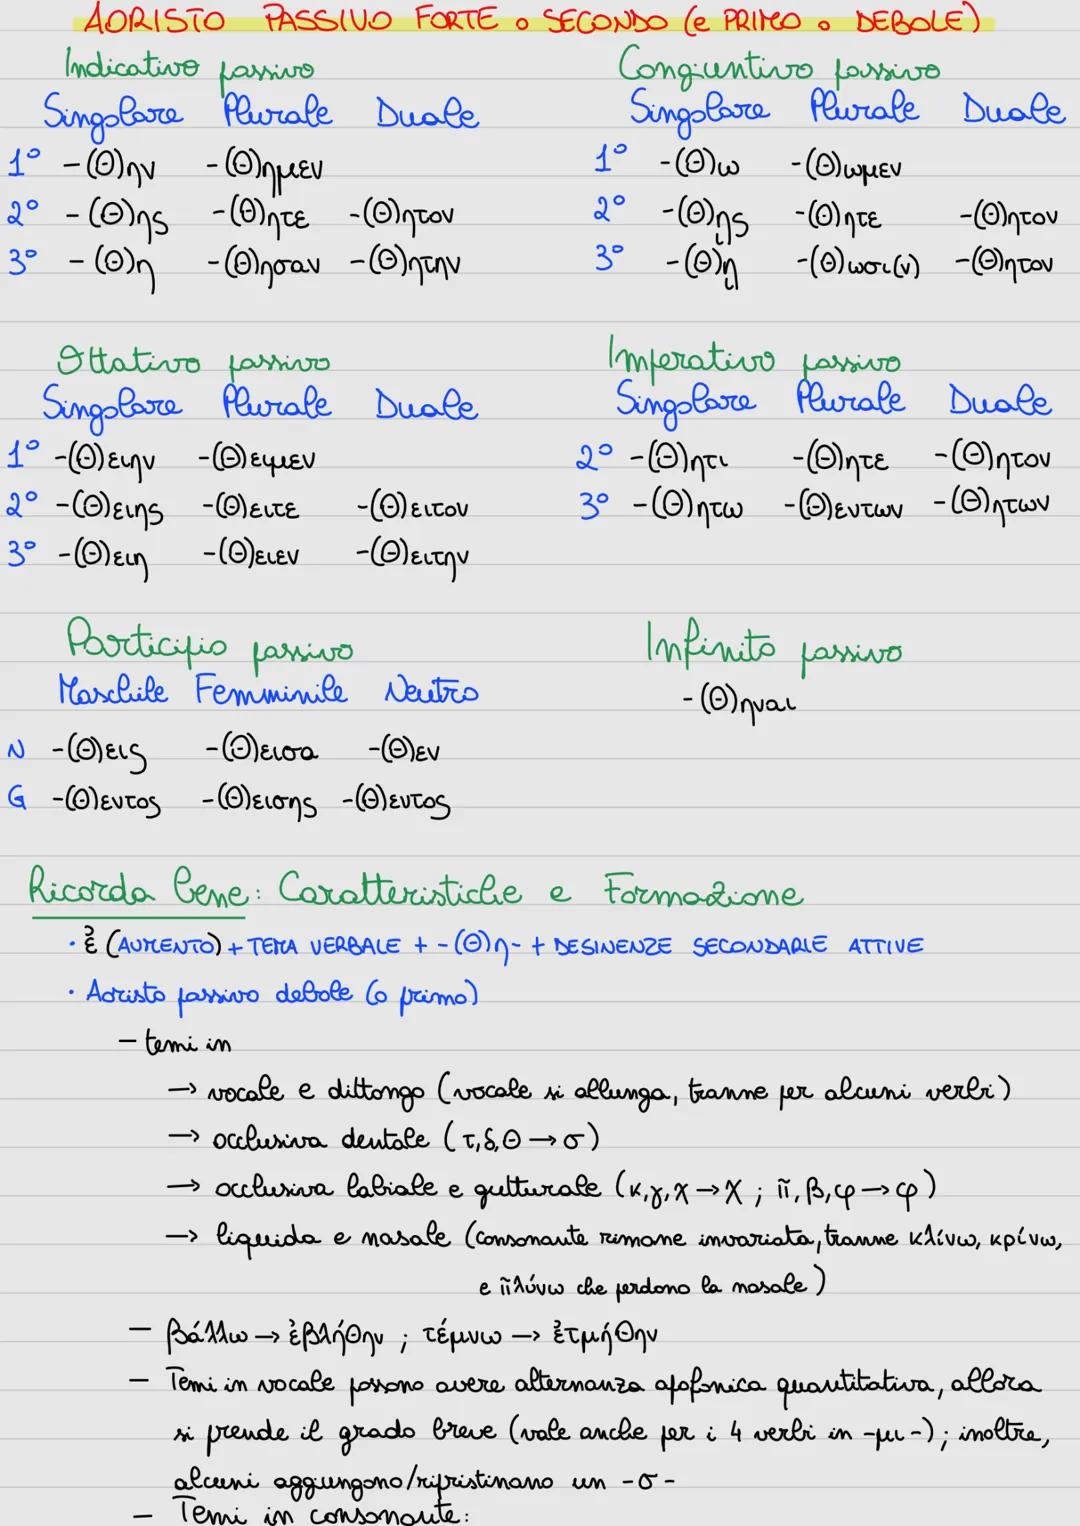 AORISTO PASSIVO FORTE o SECONDO (e PRIMO o DEBOLE)
Indicativo passivo
Singolare Plurale Duale
1° -(θ)ην -(θ)ημεν
2° -(θ)ης -(θ)ητε -(θ)ητον
3° -(θ)η -(θ)ησαν -(θ)ητην
Congiuntivo passivo
Singolare Plurale Duale
1° -(θ)ω -(θ)ωμεν
2° -(θ)ῃς -(θ)ητε -(θ)ητον
3° -(θ)ῃ -(θ)ωσι(ν) -(θ)ητον
Ottativo passivo
Singolare Plurale Duale
1° -(θ)ειην -(θ)ειμεν
2° -(θ)ειης -(θ)ειτε -(θ)ειτον
3° -(θ)ειη -(θ)ειεν -(θ)ειτην
Imperativo passivo
Singolare Plurale Duale
2° -(θ)ητι -(θ)ητε -(θ)ητον
3° -(θ)ητω -(θ)εντων -(θ)ητων
Participio passivo
Maschile Femminile Neutro
N -(θ)εις -(θ)εισα -(θ)εν
G -(θ)εντος -(θ)εισης -(θ)εντος
Infinito passivo
-(θ)ηναι
Ricorda bene: Caratteristiche e Formazione
· ἐ (AUMENTO) + TEMA VERBALE + -(θ)η- + DESINENZE SECONDARIE ATTIVE
· Aoristo passivo debole (o primo)
- temi in
→ vocale e dittongo (vocale si allunga, tranne per alcuni verbi)
→ occlusiva dentale (τ,δ,θ → σ)
→ occlusiva labiale e gutturale (κ,γ,χ → χ ; π,β,φ → φ)
→ liquida e nasale (consonante rimane invariata, tranne κλίνω, κρίνω,
e πλύνω che perdono la nasale)
- βάλλω → ἐβλήθην ; τέμνω → ἐτμήθην
- Temi in vocale possono avere alternanza apofonica quantitativa, allora
si prende il grado breve (vale anche per i 4 verbi in -μι-); inoltre,
alcuni aggiungono/ripristinano un -σ-
- Temi in consonante: